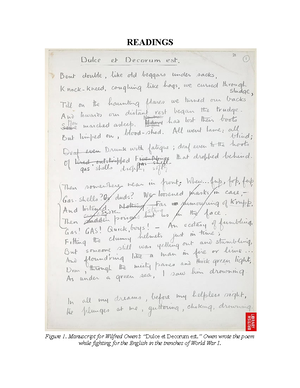 READINGS
Dulce et Decorum est.
1
Bent double, like old beggars under sacks,
Knock-kneed, coughing like hags, we cursed through sludge,
Till on the haunting flares we turned our backs
And towards our distant rest began the trudge.
marched asleep. Many had lost their boots
But limped on, blood-shod. All went lame; all blind;
Drunk with fatigue; deaf even to the hoots
Of
gas shells
that dropped behind.
Then somewhere near in front; Whew... fup, fup, fup
Gas-shells? Or duds? We loosened masks in case —
And listened.
Then
in the face
Gas! GAS! Quick, boys! — An ecstasy of fumbling
Fitting the clumsy helmets just in time;
But someone still was yelling out and stumbling,
And floundering like a man in fire or lime...
Dim, through the misty panes and thick green light,
As under a green sea, I saw him drowning.
In all my dreams, before my helpless sight,
He plunges at me, guttering, choking, drowning.
Figure 1. Manuscript for Wilfred Owen's "Dulce et Decorum est." Owen wrote the poem
while fighting for the English in the trenches of World War 1.